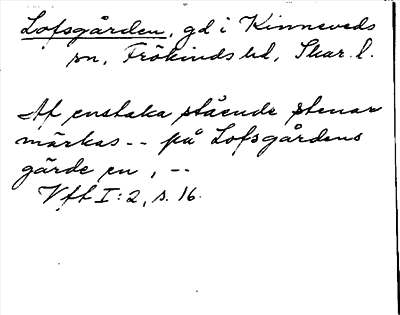 Lofsgården, gd i Kinneveds
sn, Frökinds hd, Skar. l.
Af enstaka stående stenar
märkas -- på Lofsgårdens
gärde en, --
Vff I:2, s. 16.